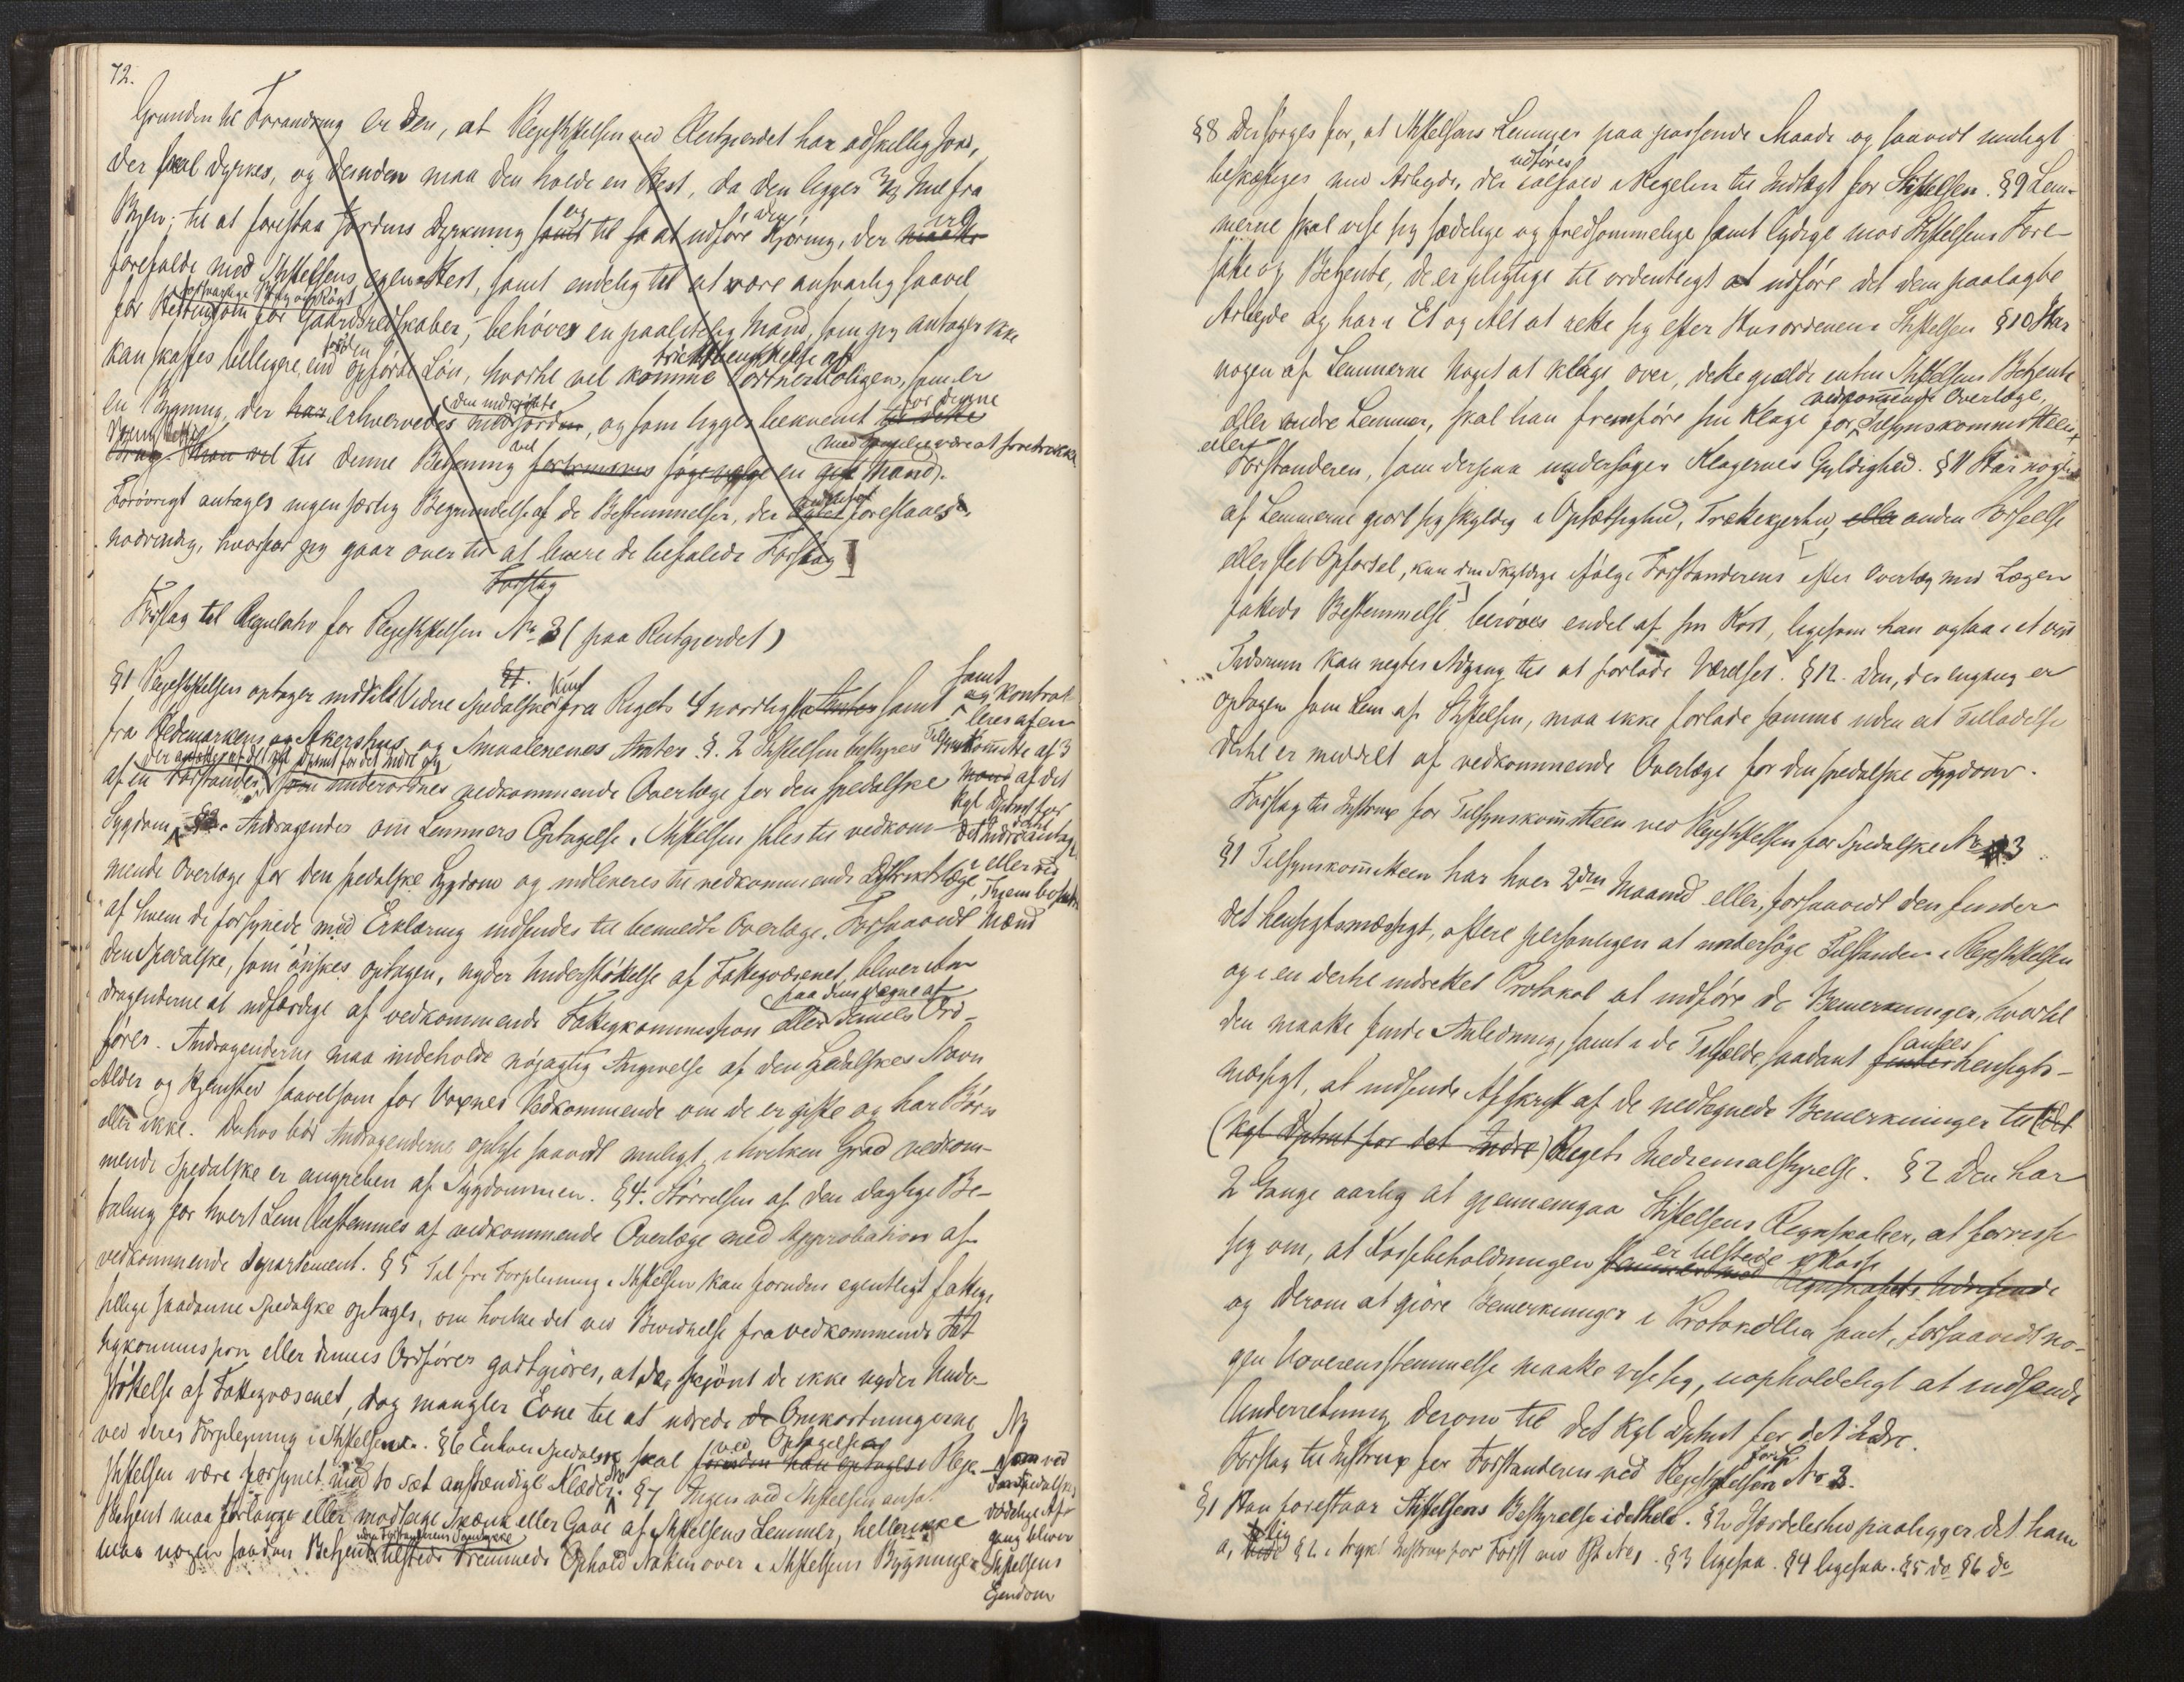 72.
Grunden til Forandring er den, at Plejestiftelsen ved Reitgjerdet har adskellig Jord,
der skal dyrkes, og desuden maa den holde en Hest, da den ligger 3/4 Miil fra
Byen; til at forestaa Jordens Dyrkning samt til at udføre den Kjøring, der maatte
forefalde med Stiftelsens egen Hest, samt endelig til at være ansvarlig saavel
forsvarlige Brug og Røgt
for Hesten som for Gaardsredskaber, behøves en paalidelig Mand, som jeg antager ikke
kan skaffes billigere, end opførte Løn, hvortil vil komme fri Benyttelse af Portnerboligen, som er
en Bygning, der har erhvervedes med Jorden, og som ligger bekvemt til dette
den indkjøbte
for denne
Brug. Man vil til denne Betjening søge en gift Mand.
med Familie være at foretrække
Forøvrigt antages ingen særlig Begrundelse af de Bestemmelser, der foreslaaes
nødvendig, hvorfor jeg gaar over til at levere de befalede Forslag
Forslag
Forslag til Regulativ for Plejestiftelsen No 3 (paa Reitgjerdet)
§1 Plejestiftelsen optager indtil Videre Spedalske Kun fra Rigets 4 nordligste Amter samt
fra Hedemarkens og Akershus og Smaalenenes Amter §. 2 Stiftelsen bestyres
der ansættes af det Kgl Dptmt for det Indre og
af en Forstander, som underordnes vedkommende Overlæge for den spedalske
samt
og kontrol-
leres af en
Tilsynskomitte af 3
Mænd af det
Kgl Dptmt for
det Indre antag
eller ved
Thjem bosatte
Mænd
Sygdom §3. Andragender om Lemmers Optagelse i Stiftelsen stiles til vedkom-
mende Overlæge for den spedalske Sygdom og indleveres til vedkommende Distriktslæge,
af hvem de forsynede med Erklæring indsendes til bemeldte Overlæge. Forsaavidt
den Spedalske, som ønskes optagen, nyder Understøttelse af Fattigvæsenet, bliver An-
dragenderne at udfærdige af vedkommende Fattigkommission eller dennes Ord-
paa dens Vegne af
fører. Andragenderne maa indeholde nøjagtig Angivelse af den Spedalskes Navn
Alder og Hjemsted saavelsom for Voxnes Vedkommende om de er gifte og har Børn
eller ikke. Derhos bør Andragenderne oplyse saavidt muligt, i hvilken Grad vedkom-
mende Spedalske er angreben af Sygdommen. §4. Størrelsen af den daglige Be-
taling for hvert Lem bestemmes af vedkommende Overlæge med Approbation af
vedkommende Departement. §5 Til fri Forplejning i Stiftelsen kan foruden egentligt fattige
tillige saadanne Spedalske optages, om hvilke det ved Bevidnelse fra vedkommende Fat
tigkommission eller dennes Ordfører godtgjøres, at de, skjønt de ikke nyder Under-
støttelse af Fattigvæsenet, dog mangler Evne til at udrede de Omkostningerne
ved deres Forplejning i Stiftelsen. §6 Enhver Spedalsk skal ved Optagelsen forinden han optages i Pleje-
stiftelsen være forsynet med to Sæt anstændige Klæder. §7 Ingen ved Stiftelsen ansat
Betjent maa forlange eller modtage Skænk eller Gave af Stiftelsens Lemmer, hellerikke
uden Forstanderens Samtykke
maa nogen saadan Betjent tilstede Fremmede Ophold Natten over i Stiftelsens Bygninger
som ved
den Spedalskes
dødelige Af-
gang bliver
Stiftelsens
Ejendom
§8 Der sørges for, at Stiftelsens Lemmer paa passende Maade og saavidt muligt
beskæftiges med Arbejde, der udføres i Regelen til Indtægt for Stiftelsen. §9 Lem-
merne skal vise sig sædelige og fredsommelige samt lydige mod Stiftelsens Fore-
satte og Betjente, de er pligtige til ordentligt at udføre det dem paalagte
Arbejde og har i Et og Alt at rette sig efter Husordenen i Stiftelsen §10 Har
nogen af Lemmerne Noget at klage over, dette gjælde enten Stiftelsens Betjente
eller andre Lemmer, skal han fremføre sin Klage for vedkommende Overlæge, Tilsynskommitteen
eller Forstanderen, som derpaa undersøger Klagernes Gyldighed. §11 Har nogen
af Lemmerne gjort sig skyldig i Opsætsighed, Trættekjærhed, eller anden Forseelse
eller slet Opførsel, kan den Skyldige ifølge Forstanderens efter Overlæg med Lægen
fattede Bestemmelse berøves endel af sin Kost, ligesom han ogsaa i et vist
Tidsrum kan negtes Adgang til at forlade Værelset. §12. Den, der engang er
optagen som Lem af Stiftelsen, maa ikke forlade samme uden at Tilladelse
dertil er meddelt af vedkommende Overlæge for den spedalske Sygdom.
Forslag til Instrux for Tilsynskomitteen ved Plejestiftelsen for Spedalske No 3
§1 Tilsynskomitteen har hver 2den Maaned eller, forsaavidt den finder
det hensigtsmæssigt, oftere personligen at undersøge Tilstanden i Plejestiftelsen
og i en dertil indrettet Protokol at indføre de Bemerkninger, hvortil
den maatte finde Anledning, samt i de Tilfælde, saadant ansees finder hensigts-
mæssigt, at indsende Afskrift af de nedtegnede Bemerkninger til (det
(Kgl Dptmt for det Indre) Rigets Medicinalstyrelse. §2 Den har
2 Gange aarlig at gjennemgaa Stiftelsens Regnskaber, at forvisse
sig om, at Kassebeholdningen er tilstede i Kasse stemmer med Regnskabets Udvisende
og derom at gjøre Bemerkninger i Protokollen samt, forsaavidt no-
gen Uoverensstemmelse maatte vise sig, uopholdeligt at indsende
Underretning derom til det Kgl Dptmt for det Indre.
Forslag til Instrux for Forstanderen ved Plejestiftelsen for Sp. No 3.
§1 Han forestaar Stiftelsens Bestyrelse i det Hele. §2 Isærdeleshed paaligger det ham
a, lig §2 i trykt Instrux for Forst ved Pst No 1. §3 ligesaa. §4 ligesaa. §5 do §6 do